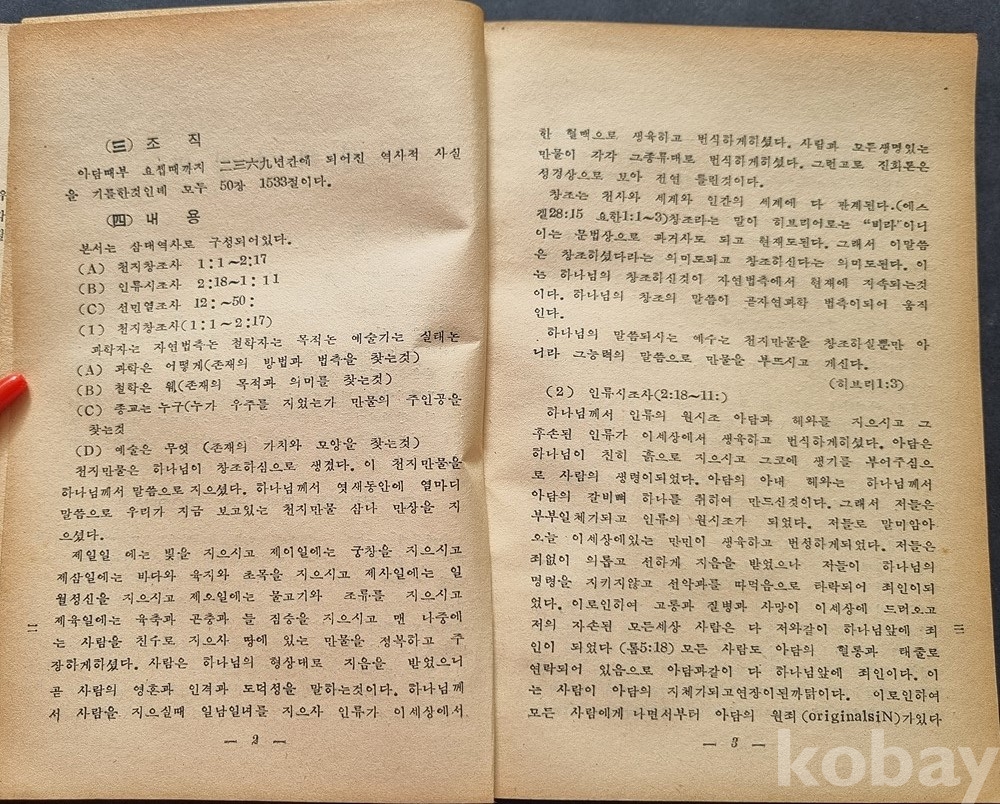 (三) 조 직
아담때부 요셉때까지 二三六九년간에 되어진 역사적 사실
을 기록한것인데 모두 50장 1533절이다.
(四) 내 용
본서는 삼대역사로 구성되어있다.
(A) 천지창조사 1:1~2:17
(B) 인류시조사 2:18~1:11
(C) 선민열조사 12:~50:
(1) 천지창조사(1:1~2:17)
과학자는 자연법측논 철학자는 목적논 예술가는 실태논
(A) 과학은 어떻게(존재의 방법과 법측을 찾는것)
(B) 철학은 웨(존재의 목적과 의미를 찾는것)
(C) 종교는 누구(누가 우주를 지었는가 만물의 주인공을
찾는것
(D) 예술은 무엇 (존재의 가치와 모양을 찾는것)
천지만물은 하나님이 창조하심으로 생겼다. 이 천지만물을
하나님께서 말씀으로 지으셨다. 하나님께서 엿새동안에 열마디
말씀으로 우리가 지금 보고있는 천지만물 삼나 만상을 지
으셨다.
제일일 에는 빛을 지으시고 제이일에는 궁창을 지으시고
제삼일에는 바다와 육지와 초목을 지으시고 제사일에는 일
월성신을 지으시고 제오일에는 물고기와 조류를 지으시고
제육일에는 육축과 곤충과 들 짐승을 지으시고 맨 나중에
는 사람을 친수로 지으사 땅에 있는 만물을 정복하고 주
장하게하셨다. 사람은 하나님의 형상대로 지음을 받었으니
곧 사람의 영혼과 인격과 도덕성을 말하는것이다. 하나님께
서 사람을 지으실때 일남일녀를 지으사 인류가 이세상에서
二
— 2 —
한 혈맥으로 생육하고 번식하게하셨다. 사람과 모든생명있는
만물이 각각 그종류대로 번식하게하셨다. 그런고로 진화론은
성경상으로 보아 전연 틀린것이다.
창조는 천사와 세계와 인간의 세계에 다 관계된다.(에스
겔28:15 요한1:1~3)창조라는 말이 히브리어로는 "바라"이니
이는 문법상으로 과거사도 되고 현재도된다. 그래서 이말씀
은 창조하셨다라는 의미도되고 창조하신다는 의미도된다. 이
는 하나님의 창조하신것이 자연법측에서 현재에 지속되는것
이다. 하나님의 창조의 말씀이 곧자연과학 법측이되어 움직
인다.
하나님의 말씀되시는 예수는 천지만물을 창조하실뿐만 아
니라 그능력의 말씀으로 만물을 부뜨시고 게신다.
(히브리1:3)
(2) 인류시조사(2:18~11:)
하나님께서 인류의 원시조 아담과 헤와를 지으시고 그
후손된 인류가 이세상에서 생육하고 번식하게하셨다. 아담은
하나님이 친히 흙으로 지으시고 그코에 생기를 부어주심으
로 사람의 생명이되었다. 아담의 아내 헤와는 하나님께서
아담의 갈비뼈 하나를 취하여 만드신것이다. 그래서 저들은
부부일체가되고 인류의 원시조가 되었다. 저들로 말미암아
오늘 이세상에있는 만민이 생육하고 번성하게되었다. 저들은
죄없이 의롭고 선하게 지음을 받었으나 저들이 하나님의
명령을 지키지않고 선악과를 따먹음으로 타락되어 죄인이되
었다. 이로인하여 고통과 질병과 사망이 이세상에 드러오고
저의 자손된 모든세상 사람은 다 저와같이 하나님앞에 죄
인이 되었다 (롬5:18) 모든 사람도 아담의 혈통과 태줄로
연락되어 있음으로 아담과같이 다 하나님앞에 죄인이다. 이
는 사람이 아담의 지체가되고연장이된까닭이다. 이로인하여
모든 사람에게 나면서부터 아담의 원죄(originalsiN)가있다
三
— 3 —
kobay